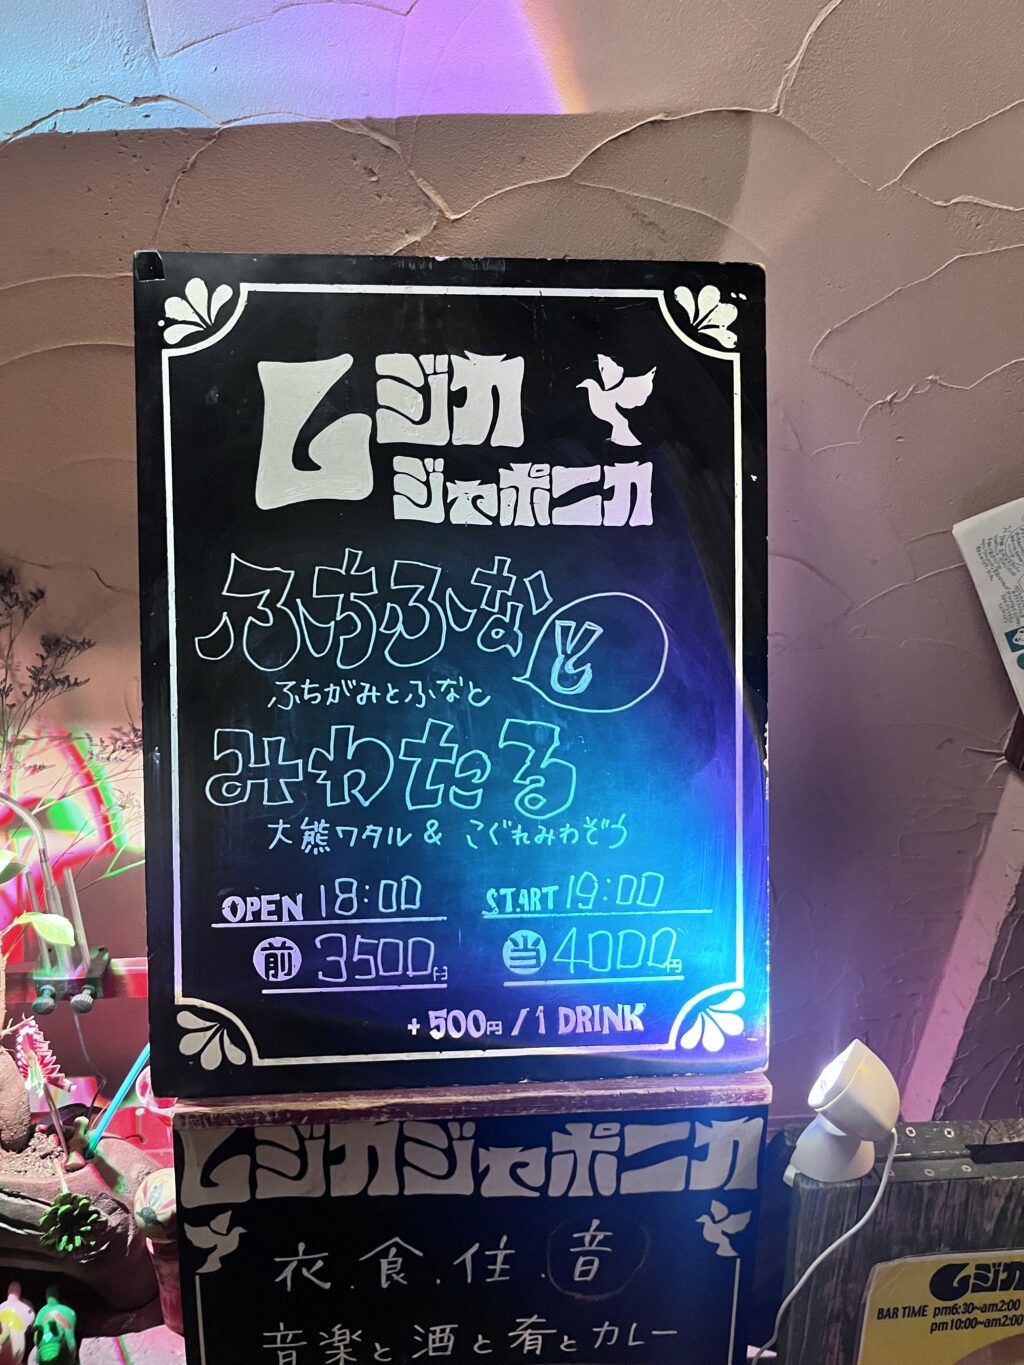 ムジカ
ジャポニカ
ふちふな
と
ふちがみとふなと
みわたる
大熊ワタル & こぐれみわぞう
OPEN 18:00 START 19:00
前 3500円 当 4000円
+500円/1 DRINK
ムジカジャポニカ
衣.食.住.音
音楽と酒と肴とカレー
ムジカ
BAR TIME pm6:30~am2:00
pm10:00~am2:00